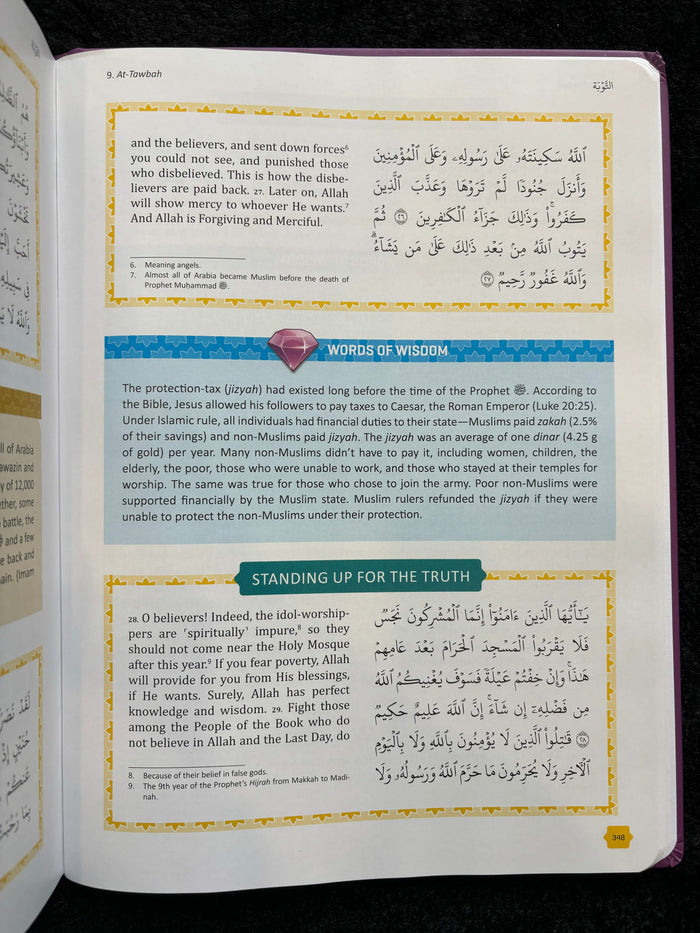 9. At-Tawbah
التَّوْبَة
and the believers, and sent down forces⁶
you could not see, and punished those
who disbelieved. This is how the disbe-
lievers are paid back. 27. Later on, Allah
will show mercy to whoever He wants.⁷
And Allah is Forgiving and Merciful.
6. Meaning angels.
7. Almost all of Arabia became Muslim before the death of
Prophet Muḥammad ﷺ.
ٱللَّهُ سَكِينَتَهُۥ عَلَىٰ رَسُولِهِۦ وَعَلَى ٱلْمُؤْمِنِينَ
وَأَنزَلَ جُنُودًا لَّمْ تَرَوْهَا وَعَذَّبَ ٱلَّذِينَ
كَفَرُوا۟ۚ وَذَٰلِكَ جَزَآءُ ٱلْكَٰفِرِينَ ٢٦ ثُمَّ
يَتُوبُ ٱللَّهُ مِنۢ بَعْدِ ذَٰلِكَ عَلَىٰ مَن يَشَآءُۗ
وَٱللَّهُ غَفُورٌ رَّحِيمٌ ٢٧
WORDS OF WISDOM
The protection-tax (jizyah) had existed long before the time of the Prophet ﷺ. According to
the Bible, Jesus allowed his followers to pay taxes to Caesar, the Roman Emperor (Luke 20:25).
Under Islamic rule, all individuals had financial duties to their state—Muslims paid zakah (2.5%
of their savings) and non-Muslims paid jizyah. The jizyah was an average of one dinar (4.25 g
of gold) per year. Many non-Muslims didn't have to pay it, including women, children, the
elderly, the poor, those who were unable to work, and those who stayed at their temples for
worship. The same was true for those who chose to join the army. Poor non-Muslims were
supported financially by the Muslim state. Muslim rulers refunded the jizyah if they were
unable to protect the non-Muslims under their protection.
STANDING UP FOR THE TRUTH
28. O believers! Indeed, the idol-worship-
pers are ˹spiritually˺ impure,⁸ so they
should not come near the Holy Mosque
after this year.⁹ If you fear poverty, Allah
will provide for you from His blessings,
if He wants. Surely, Allah has perfect
knowledge and wisdom. 29. Fight those
among the People of the Book who do
not believe in Allah and the Last Day, do
8. Because of their belief in false gods.
9. The 9th year of the Prophet's Hijrah from Makkah to Madi-
nah.
يَٰٓأَيُّهَا ٱلَّذِينَ ءَامَنُوٓا۟ إِنَّمَا ٱلْمُشْرِكُونَ نَجَسٌ
فَلَا يَقْرَبُوا۟ ٱلْمَسْجِدَ ٱلْحَرَامَ بَعْدَ عَامِهِمْ
هَٰذَاۚ وَإِنْ خِفْتُمْ عَيْلَةً فَسَوْفَ يُغْنِيكُمُ ٱللَّهُ
مِن فَضْلِهِۦٓ إِن شَآءَۚ إِنَّ ٱللَّهَ عَلِيمٌ حَكِيمٌ
٢٨ قَٰتِلُوا۟ ٱلَّذِينَ لَا يُؤْمِنُونَ بِٱللَّهِ وَلَا بِٱلْيَوْمِ
ٱلْـَٔاخِرِ وَلَا يُحَرِّمُونَ مَا حَرَّمَ ٱللَّهُ وَرَسُولُهُۥ وَلَا
348
ll of Arabia
awazin and
y of 12,000
ether, some
battle, the
and a few
e back and
ain. (Imam